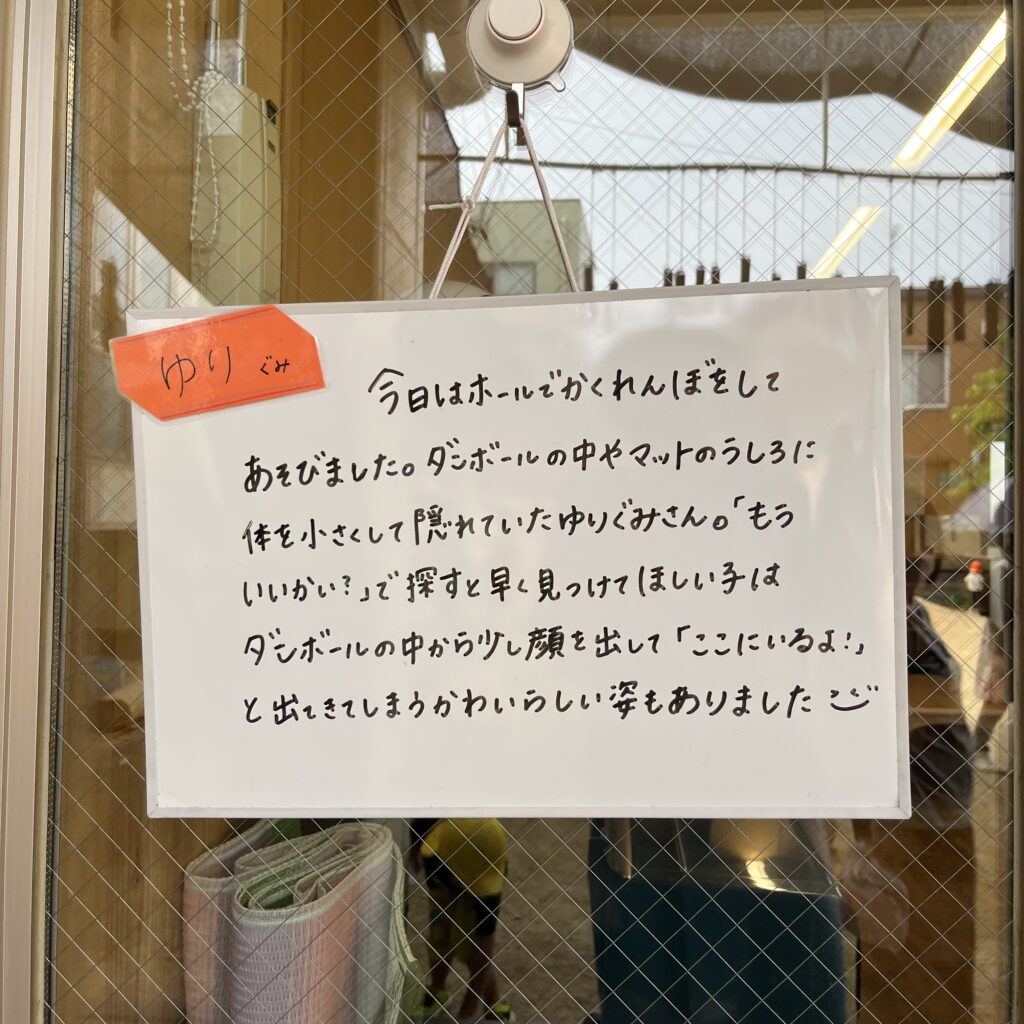 ゆりぐみ
今日はホールでかくれんぼをして
あそびました。ダンボールの中やマットのうしろに
体を小さくして隠れていたゆりぐみさん。「もう
いいかい?」で探すと早く見つけてほしい子は
ダンボールの中から少し顔を出して「ここにいるよ!」
と出てきてしまうかわいらしい姿もありました